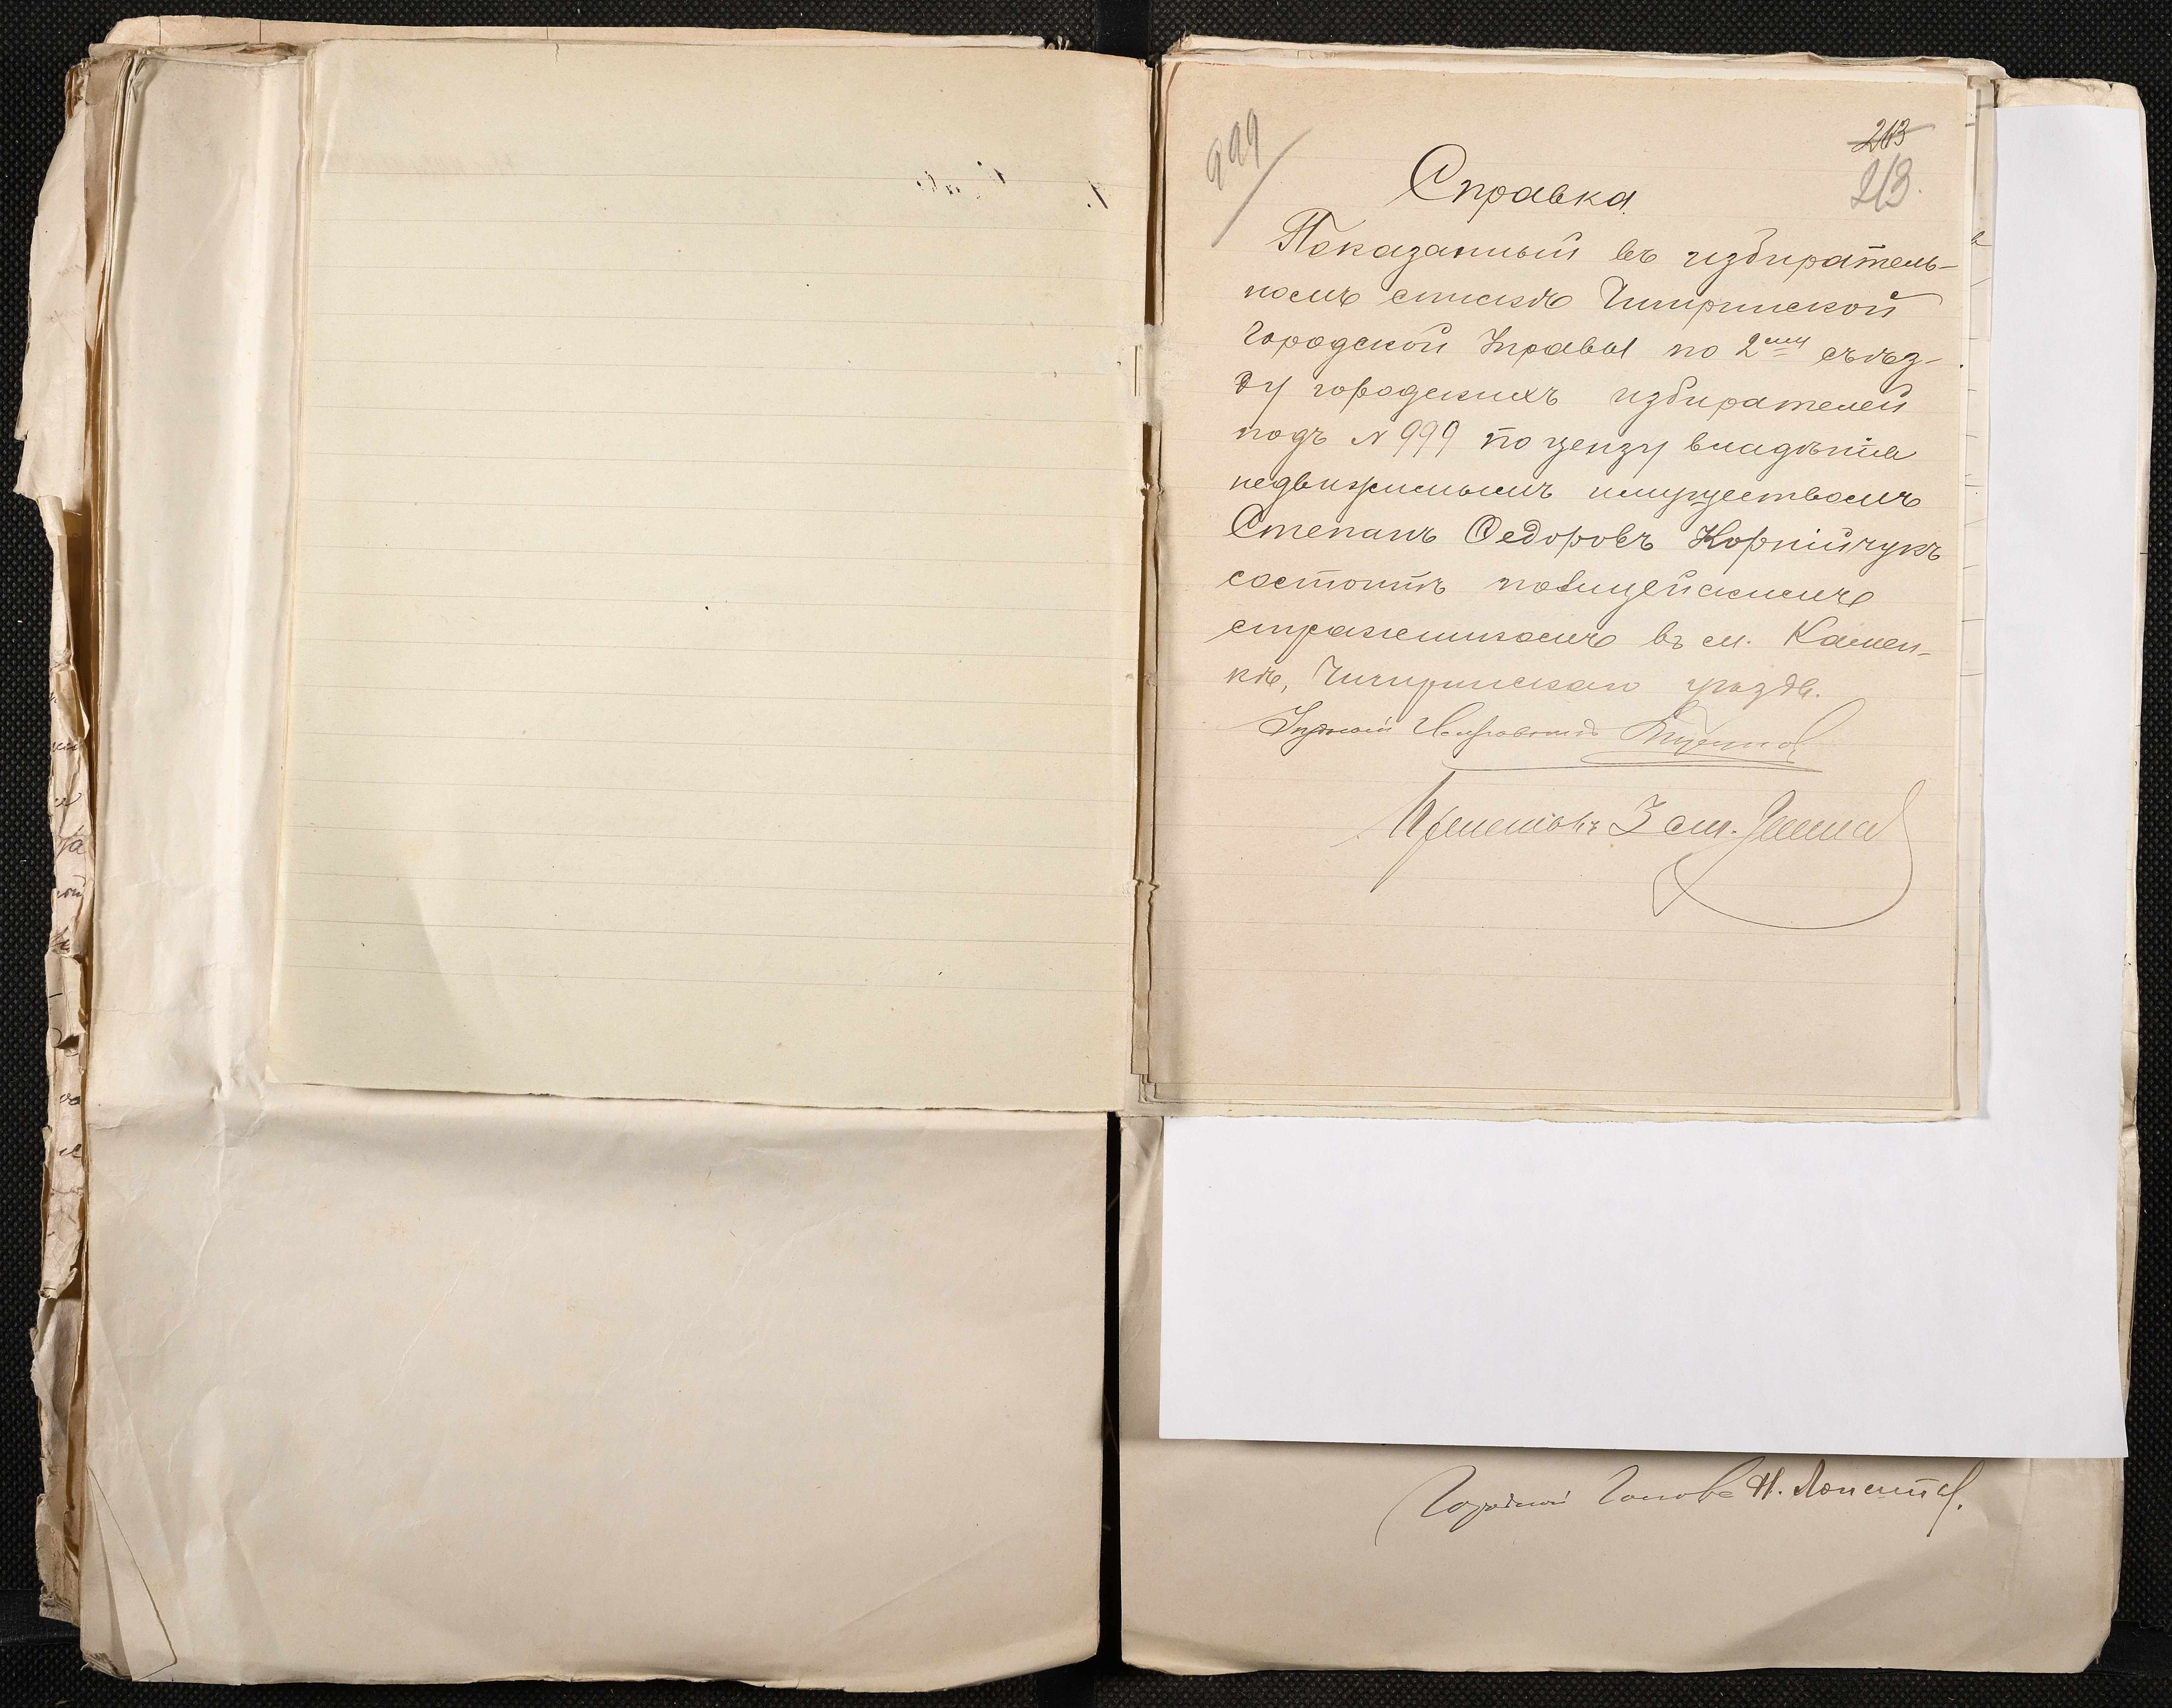 999
213
213.
Справка
Показанный въ избиратель-
номъ спискѣ Чигиринской
Городской Управы по 2ому съѣз-
ду городскихъ избирателей
подъ № 999 по цензу владѣнія
недвижимымъ имуществомъ
Степанъ Ѳедоровъ Корнійчукъ
состоитъ полицейскимъ
стражникомъ въ м. Камен-
кѣ, Чигиринскаго уѣзда.
Уѣздный Исправникъ
3 ст.
Городской Голова Н.